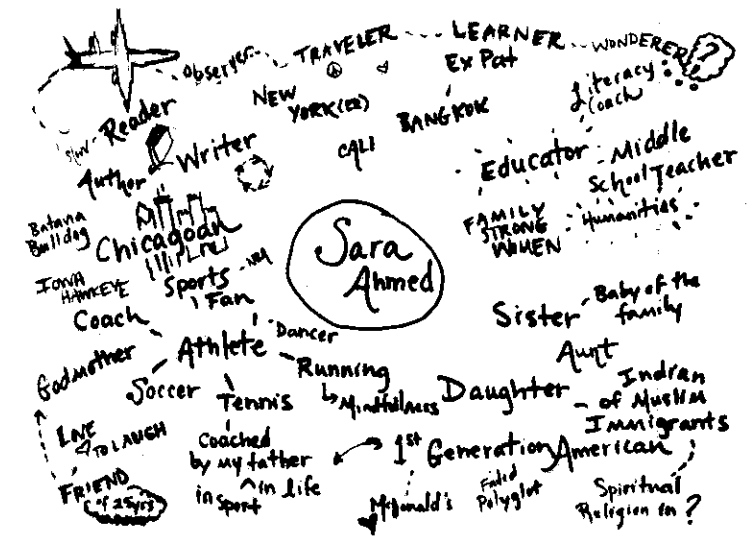 observer
TRAVELER
LEARNER
WONDERER
?
Ex Pat
Literacy
Coach
NEW
YORK(ER)
BANGKOK
CALI
slow
Reader
Writer
Author
Educator
Middle
School Teacher
Humanities
FAMILY
STRONG
WOMEN
Batavia
Bulldog
Chicagoan
Sara
Ahmed
IOWA
HAWKEYE
Sports
Fan
Coach
Sister
Baby of the
family
Aunt
Godmother
Athlete
Dancer
Running
Mindfulness
Soccer
Tennis
Daughter
Indian
of Muslim
Immigrants
LOVE
TO LAUGH
Coached
by my father
in sport
in life
1st Generation American
FRIEND
of 25 yrs
McDonald's
Failed
Polyglot
Spiritual
Religion in ?